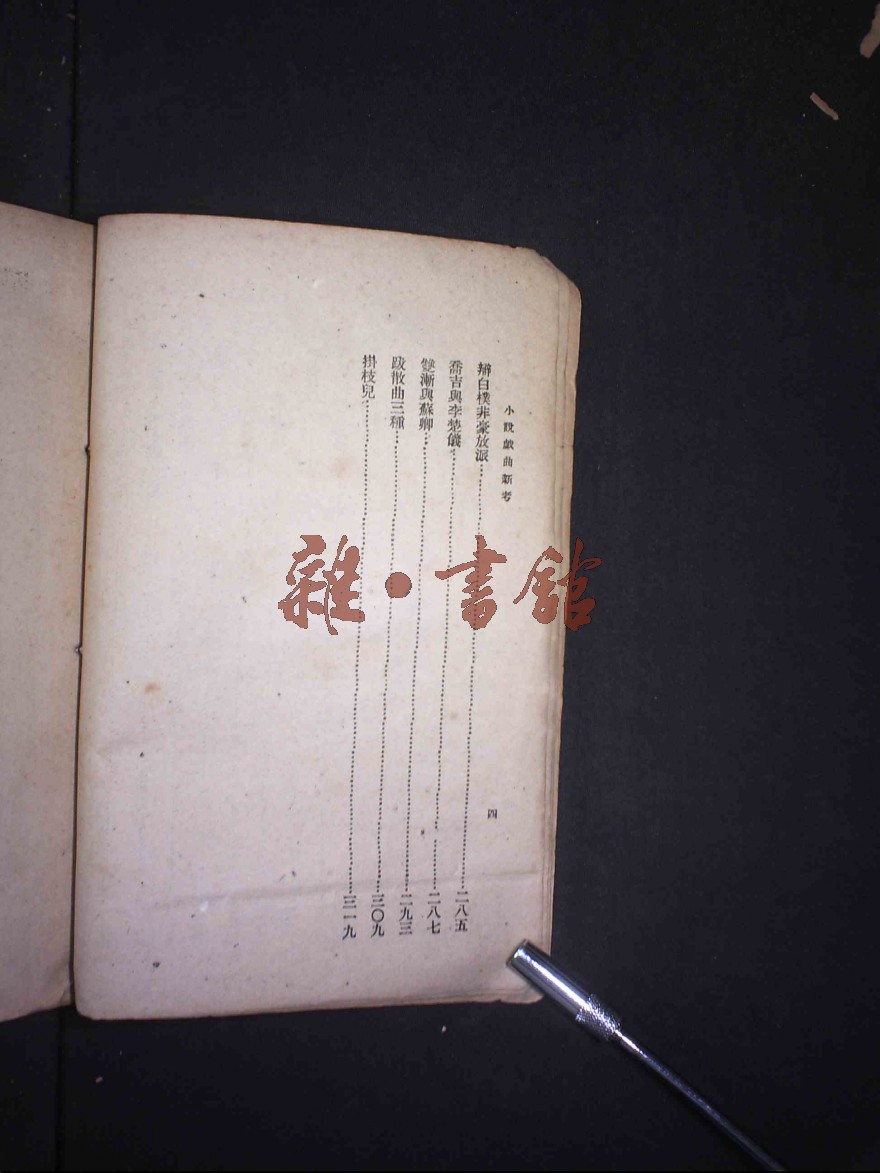 小說戲曲新考
四
辯白樸非豪放派……二八五
喬吉與李楚儀……二八七
雙漸與蘇卿……二九三
跋散曲三種……三〇九
掛枝兒……三一九
雜•書館